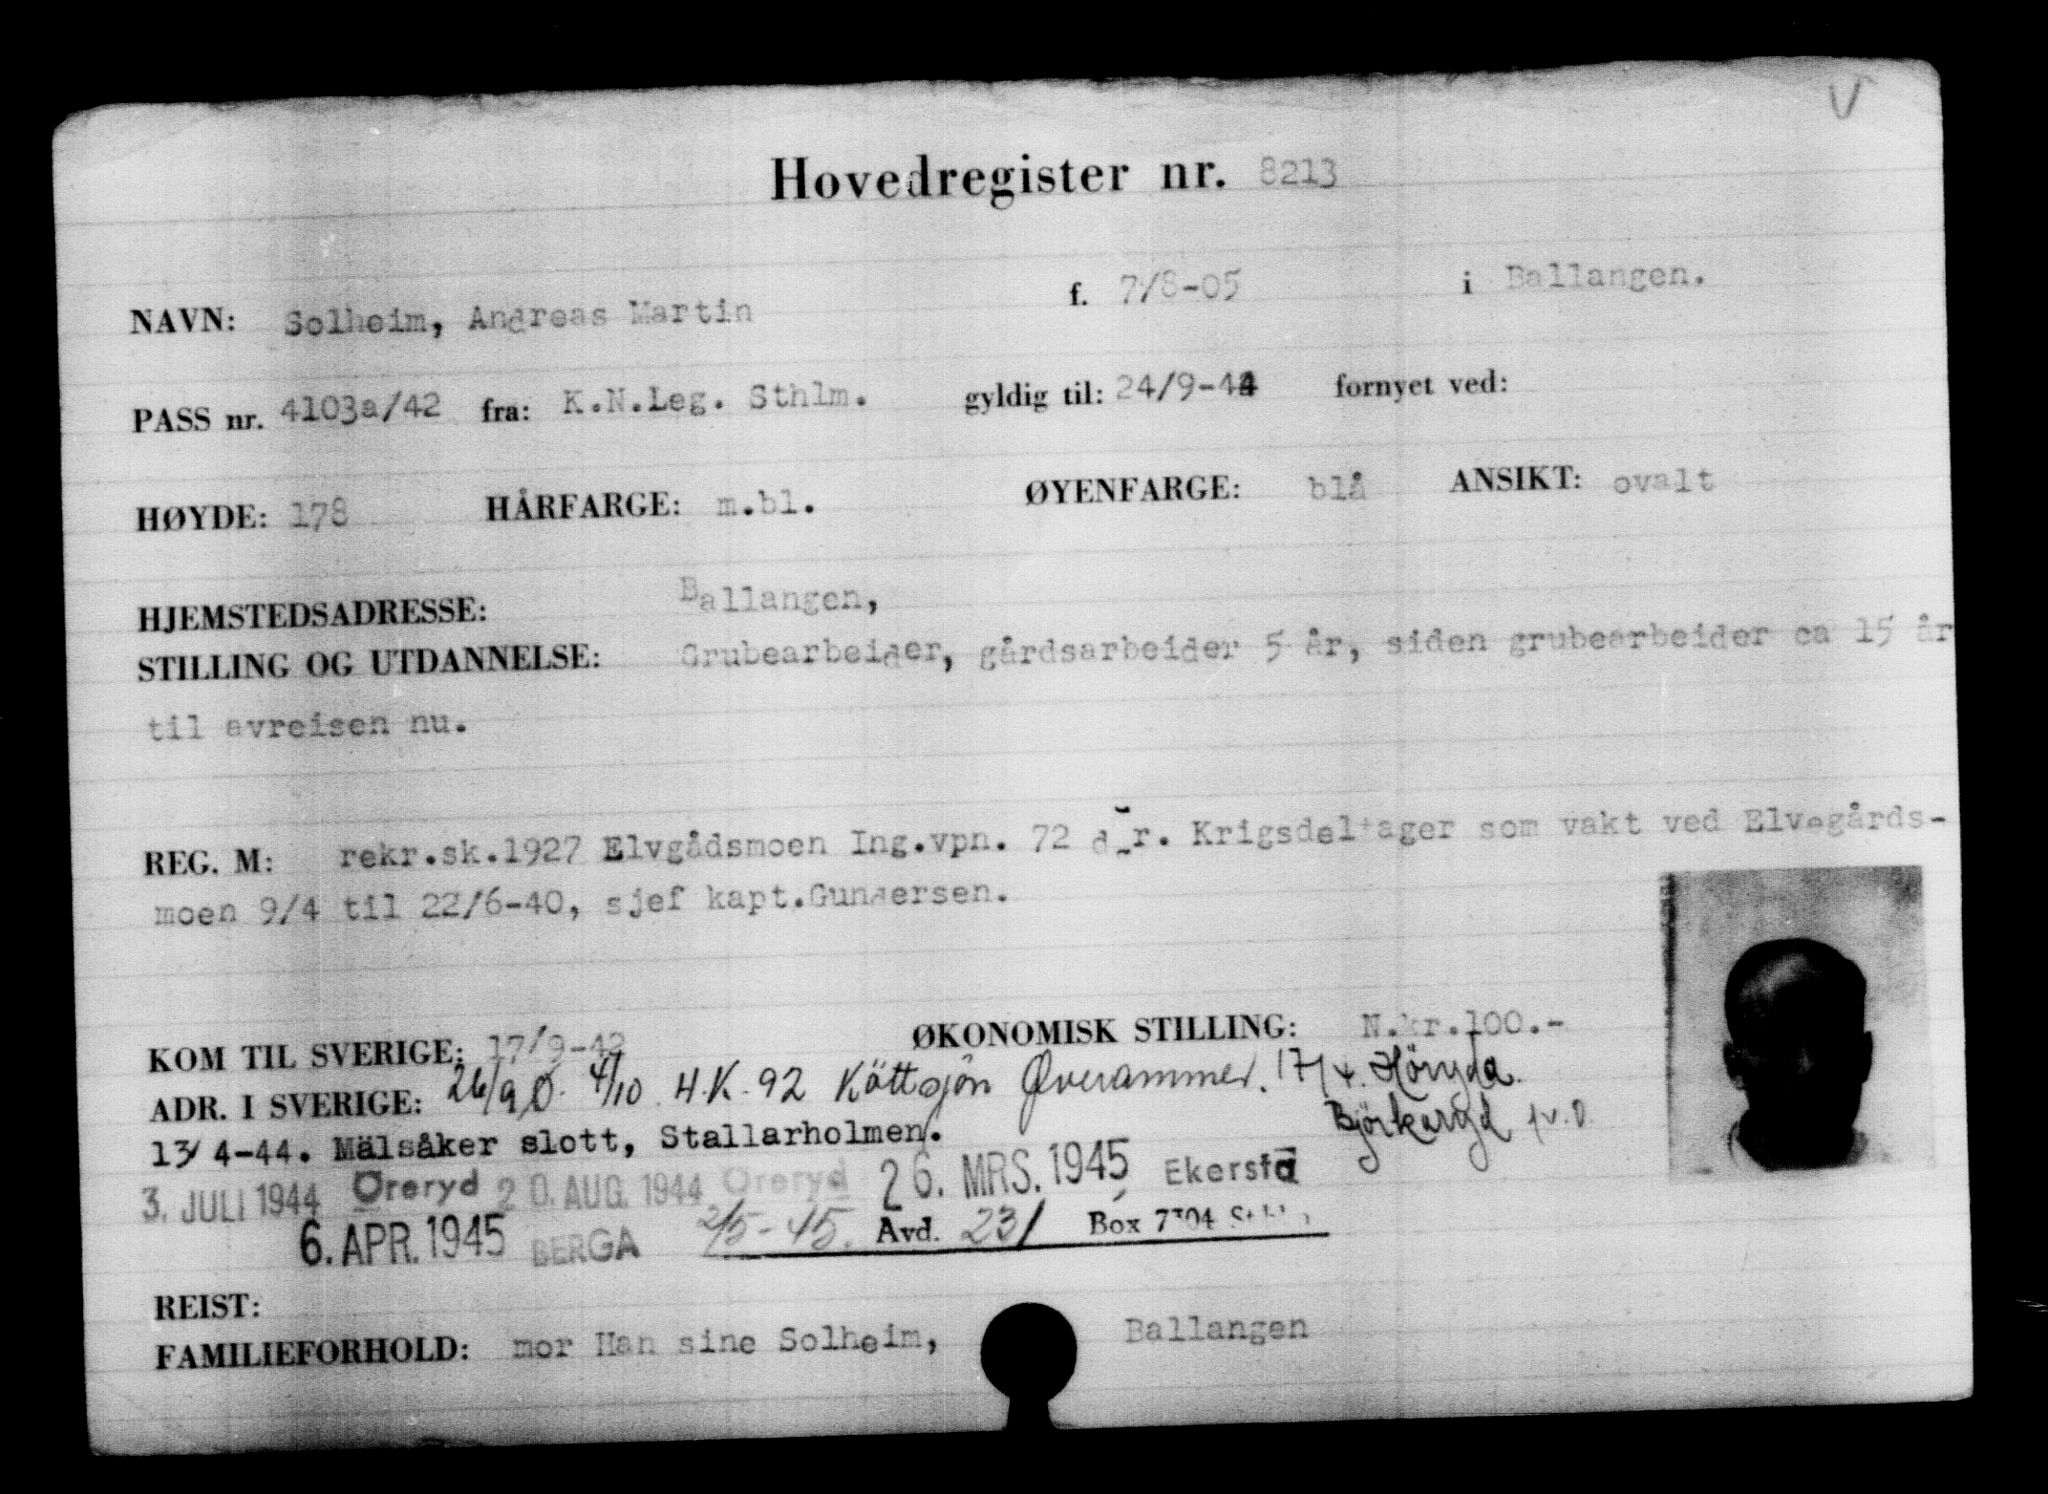 Hovedregister nr. 8213
NAVN: Solheim, Andreas Martin f. 7/8-05 i Ballangen.
PASS nr. 4103a/42 fra: K.N.Leg. Sthlm. gyldig til: 24/9-44 fornyet ved:
HØYDE: 178 HÅRFARGE: m.bl. ØYENFARGE: blå ANSIKT: ovalt
HJEMSTEDSADRESSE: Ballangen,
STILLING OG UTDANNELSE: Grubearbeider, gårdsarbeider 5 år, siden grubearbeider ca 15 år
til avreisen nu.
REG. M: rekr.sk.1927 Elvgådsmoen Ing.vpn. 72 d r. Krigsdeltager som vakt ved Elvegårds-
moen 9/4 til 22/6-40, sjef kapt.Gundersen.
KOM TIL SVERIGE: 17/9-42 ØKONOMISK STILLING: N.kr.100.-
ADR. I SVERIGE: 26/9 Ö. 4/10 H.K. 92 Köttsjön Överammer. 17/4. Höryda.
Björkaryd
13/4-44. Mälsåker slott, Stallarholmen.
3. JULI 1944 Öreryd 20. AUG. 1944 Öreryd 26. MRS. 1945 Ekersta
6. APR. 1945 BERGA 2/5-45. Avd. 231 Box 7304 Sthlm
REIST:
FAMILIEFORHOLD: mor Han sine Solheim, Ballangen